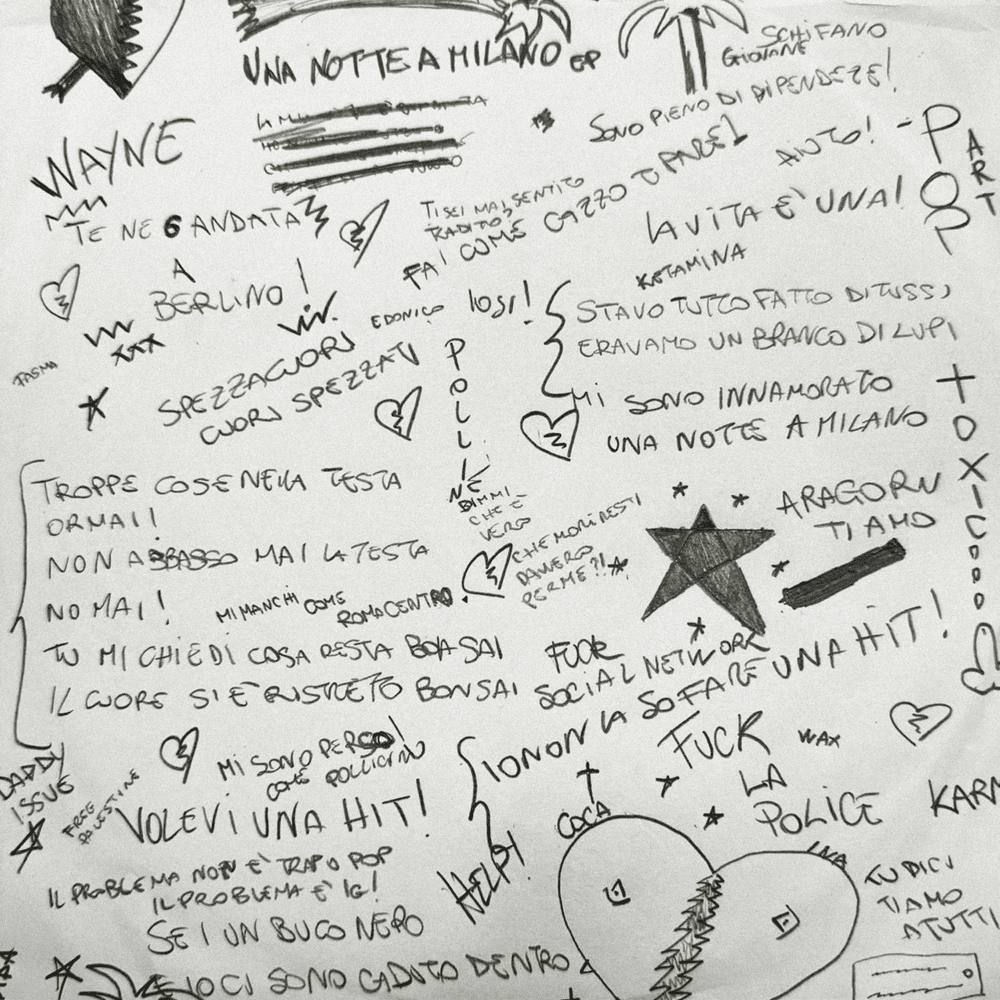 UNA NOTTE A MILANO EP
GIOVANE
SCHIFANO
SONO PIENO DI DIPENDEZE!
AIUTO!
POP
ART
WAYNE
TE NE 6 ANDATA
A
BERLINO!
TI SEI MAI SENTITO
TRADITO?
FAI COME CAZZO TI PARE!
LA VITA È UNA!
KETAMINA
EDONICO
IOSI!
STAVO TUTTO FATTO DI TUSSI
ERAVAMO UN BRANCO DI LUPI
MI SONO INNAMORATO
UNA NOTTE A MILANO
TOXIC
XXX
TASMA
SPEZZACUORI
CUORI SPEZZATI
POLLINE
DIMMI
CHE È
VERO
CHE MORIRESTI
DAVVERO
PER ME?!
ARAGORN
TI AMO
TROPPE COSE NELLA TESTA
ORMAI!
NON ABBASSO MAI LA TESTA
NO MAI!
MI MANCHI COME
ROMA CENTRO
TU MI CHIEDI COSA RESTA BOH SAI
IL CUORE SI È RISTRETTO BONSAI
FUCK
SOCIAL NETWORK
IO NON LA SO FARE UNA HIT!
DADDY
ISSUE
FREE
PALESTINE
MI SONO PERSO!
COME POLLICINO
VOLEVI UNA HIT!
FUCK
LA
POLICE
WAX
KARM
COCA
HELP!
IL PROBLEMA NON È TRAP O POP
IL PROBLEMA È IG!
SEI UN BUCO NERO
E IO CI SONO CADUTO DENTRO
TU DICI
TI AMO
A TUTTI